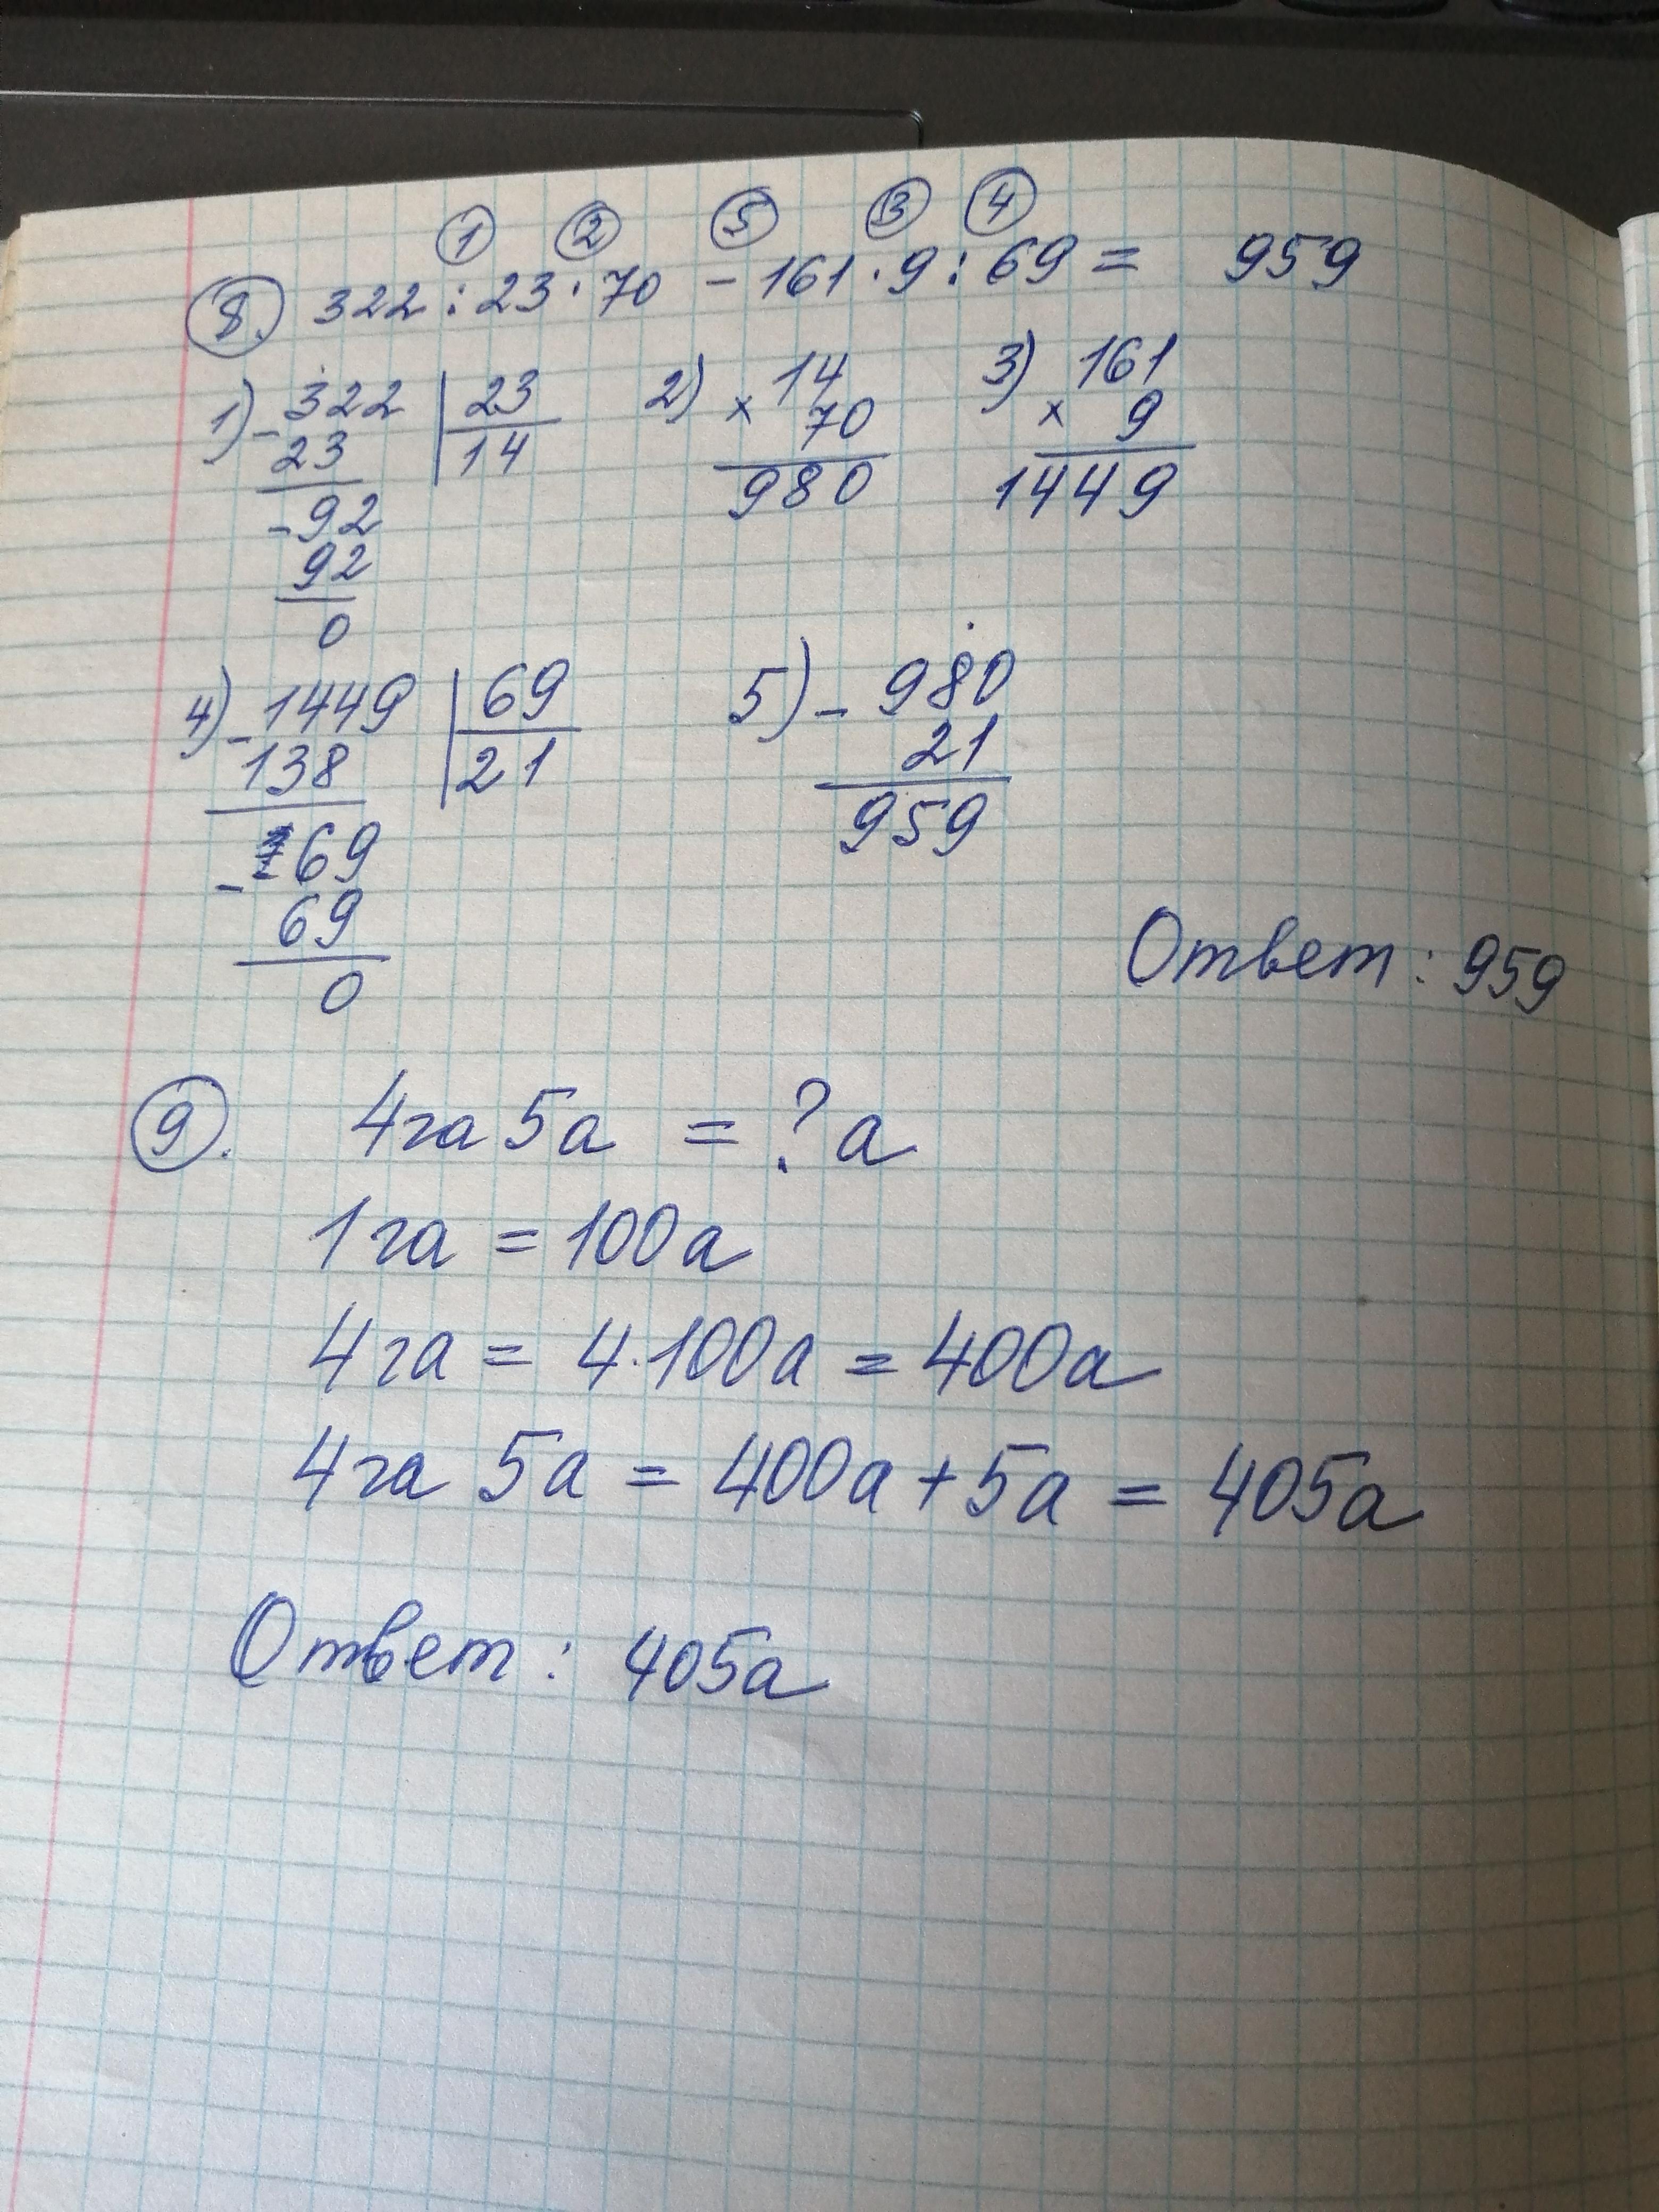 ① ② ⑤ ③ ④
⑧. 322 : 23 · 70 - 161 · 9 : 69 = 959
1) - 322 | 23
23 | 14
- 92
92
0
2) × 14
70
980
3) × 161
9
1449
4) - 1449 | 69
138 | 21
- 69
69
0
5) - 980
21
959
Ответ: 959
⑨. 4га 5а = ? а
1га = 100а
4га = 4·100а = 400а
4га 5а = 400а + 5а = 405а
Ответ: 405а